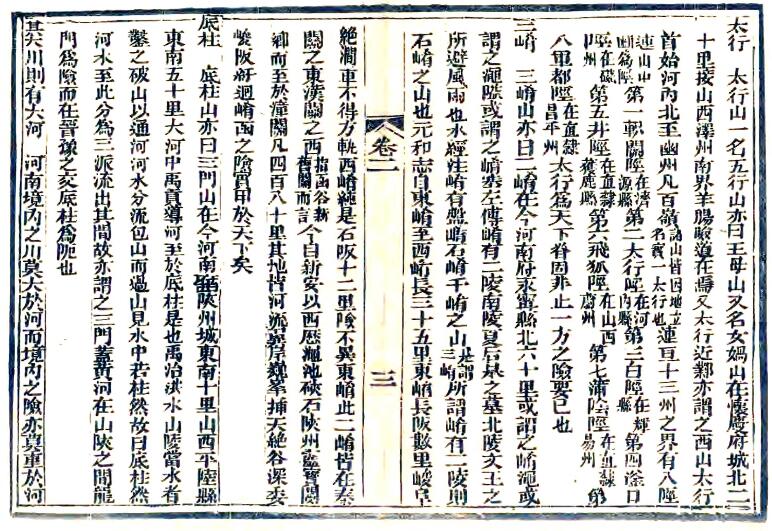 太行　太行山一名五行山亦曰王母山又名女媧山在懷慶府城北二
十里接山西澤州南界羊腸險道在焉又太行近鄴亦謂之西山太行
首始河內北至幽州凡百嶺諸山皆因地立名實一太行也連亘十三州之界有八陘
連山中斷為陘第一軹關陘在濟源縣第二太行陘在河內縣第三白陘在輝縣第四滏口
陘在磁州第五井陘在直隸獲鹿縣第六飛狐陘在山西蔚州第七蒲陰陘在直隸易州第
八軍都陘在直隸昌平州太行為天下脊固非止一方之險要已也
三崤　三崤山亦曰二崤在今河南府永寧縣北六十里或謂之崤澠或
謂之澠隘或謂之崤塞左傳崤有二陵南陵夏后皋之墓北陵文王之
所避風雨也水經注崤有盤崤石崤千崤之山是謂三崤所謂崤有二陵則
石崤之山也元和志自東崤至西崤長三十五里東崤長阪數里峻阜
卷二
三
絕澗車不得方軌西崤純是石阪十二里險不異東崤此二崤皆在秦
關之東漢關之西指函谷新舊關而言今自新安以西歷澠池硤石陝州靈寶閿
鄉而至於潼關凡四百八十里其地皆河流翼岸巍峯插天絕谷深委
峻阪紆迴崤函之險實甲於天下矣
底柱　底柱山亦曰三門山在今河南陝州城東南十里山西平陸縣
東南五十里大河中禹貢導河至於底柱是也禹治洪水山陵當水者
鑿之破山以通河河水分流包山而過山見水中若柱然故曰底柱然
河水至此分為三派流出其間故亦謂之三門蓋黃河在山陝之間龍
門為險而在晉豫之交底柱為阨也
其大川則有大河　河南境內之川莫大於河而境內之險亦莫重於河